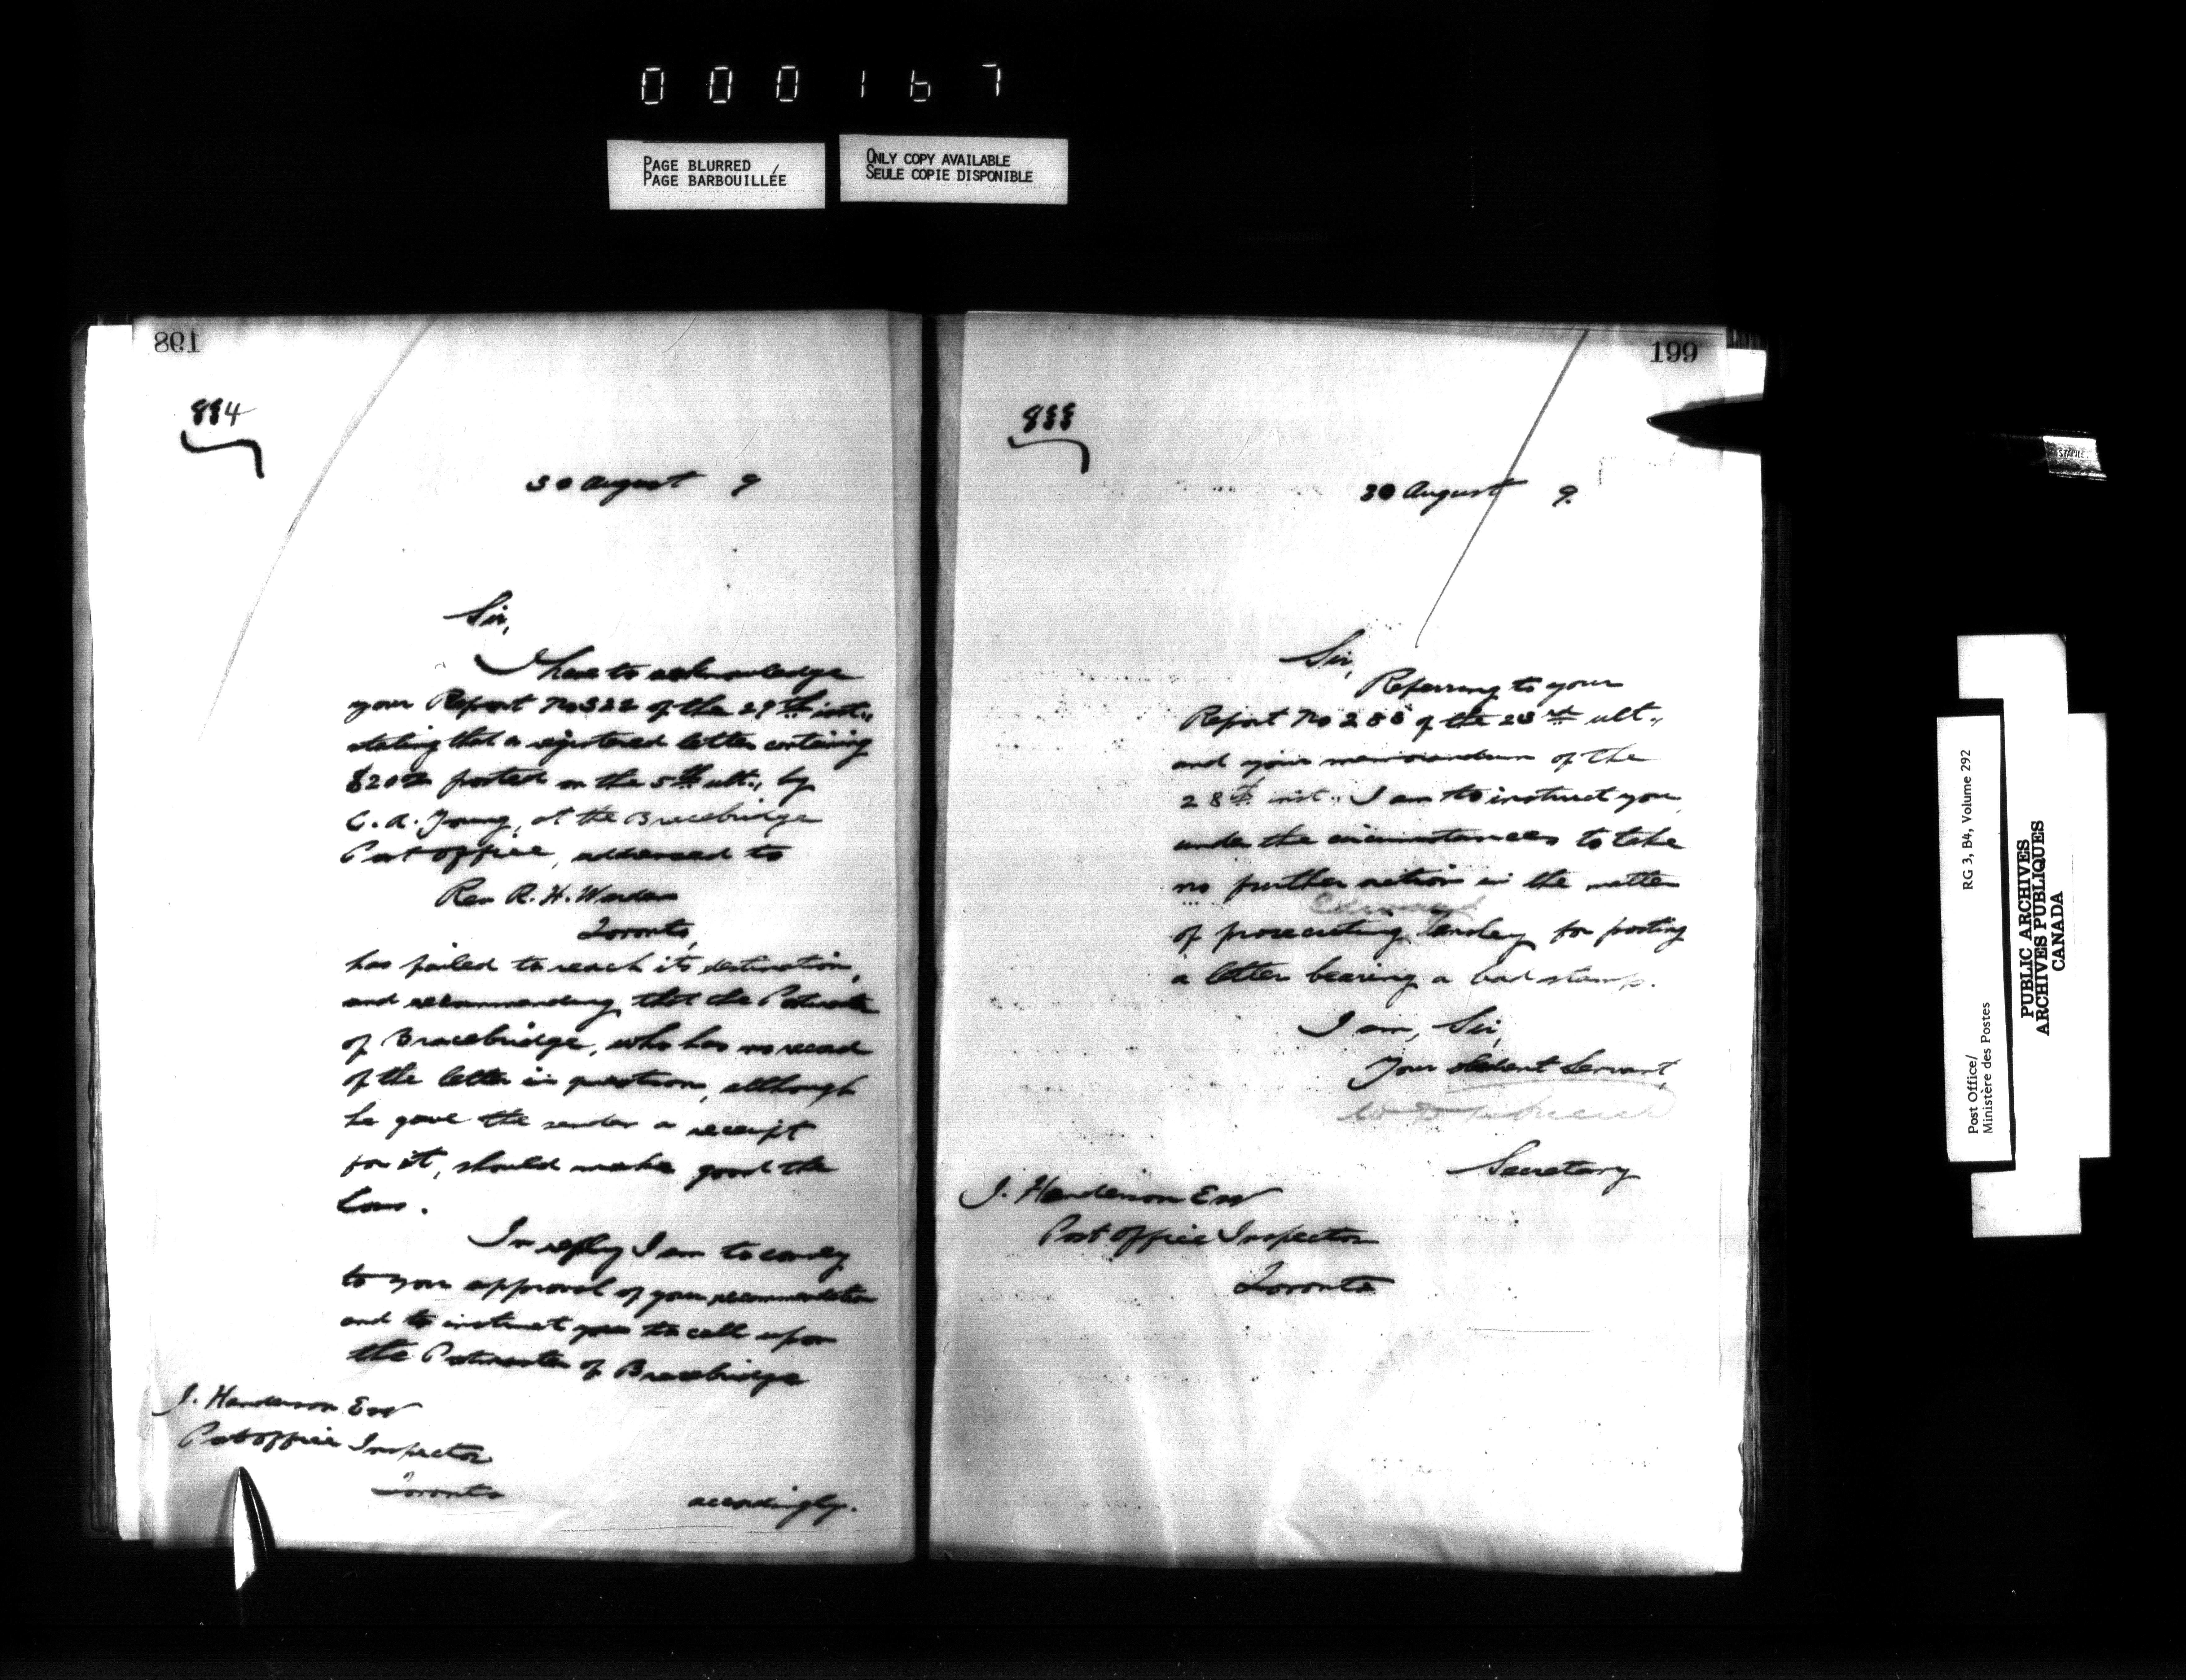 000167
PAGE BLURRED
PAGE BARBOUILLÉE
ONLY COPY AVAILABLE
SEULE COPIE DISPONIBLE
198
884
30 August 9
Sir,
I have to acknowledge
your Report No 322 of the 29th inst.,
stating that a registered letter containing
posted on the 5th ult., by
C. A. Young, at the Bracebridge
Post Office, addressed to
Rev R. H. Warden
Toronto,
has failed to reach its destination,
and recommending that the Postmaster
of Bracebridge, who has no record
of the letter in question, although
he gave the sender a receipt
for it, should make good the
loss.
In reply I am to convey
to you approval of your recommendation
and to instruct you to call upon
the Postmaster of Bracebridge
J. Henderson Esq
Post Office Inspector
Toronto
accordingly.
199
30 August 9.
Sir,
Referring to your
Report No of the 23rd ult.,
and your memorandum of the
28th inst., I am to instruct you,
under the circumstances to take
no further action in the matter
Edward
of prosecuting for posting
a letter bearing a bad stamp.
I am, Sir,
Your obedient Servant,
Secretary
J. Henderson Esq
Post Office Inspector
Toronto
STAPLE
Post Office/
Ministère des Postes
RG 3, B4, Volume 292
PUBLIC ARCHIVES
ARCHIVES PUBLIQUES
CANADA